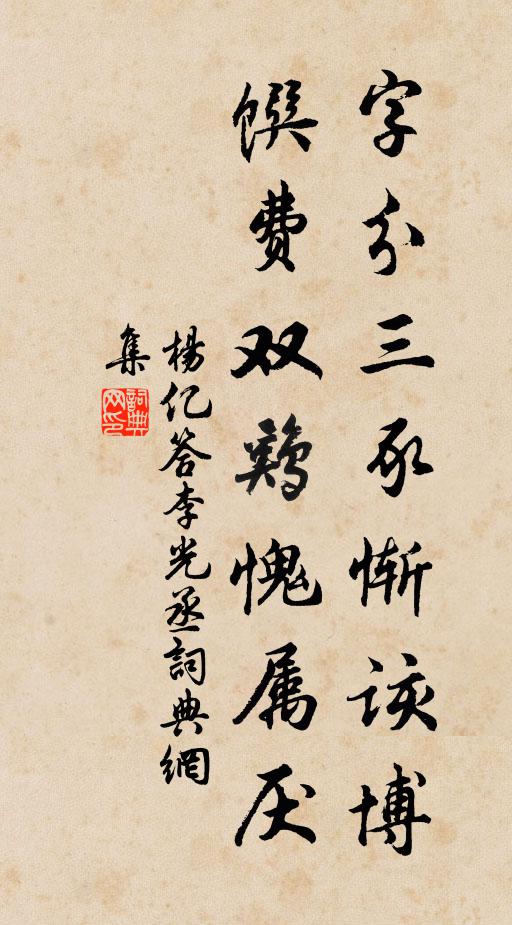 字分三豕惭该博
馔费双鸡愧属厌
楊亿答李光丞詞典網
集
詞典
网印